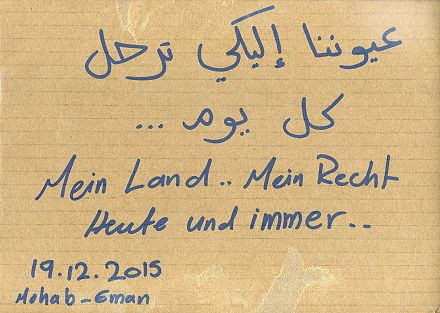 عيوننا إليكي ترحل
كل يوم ...
Mein Land.. Mein Recht
Heute und immer..
19.12.2015
Mohab-Eman